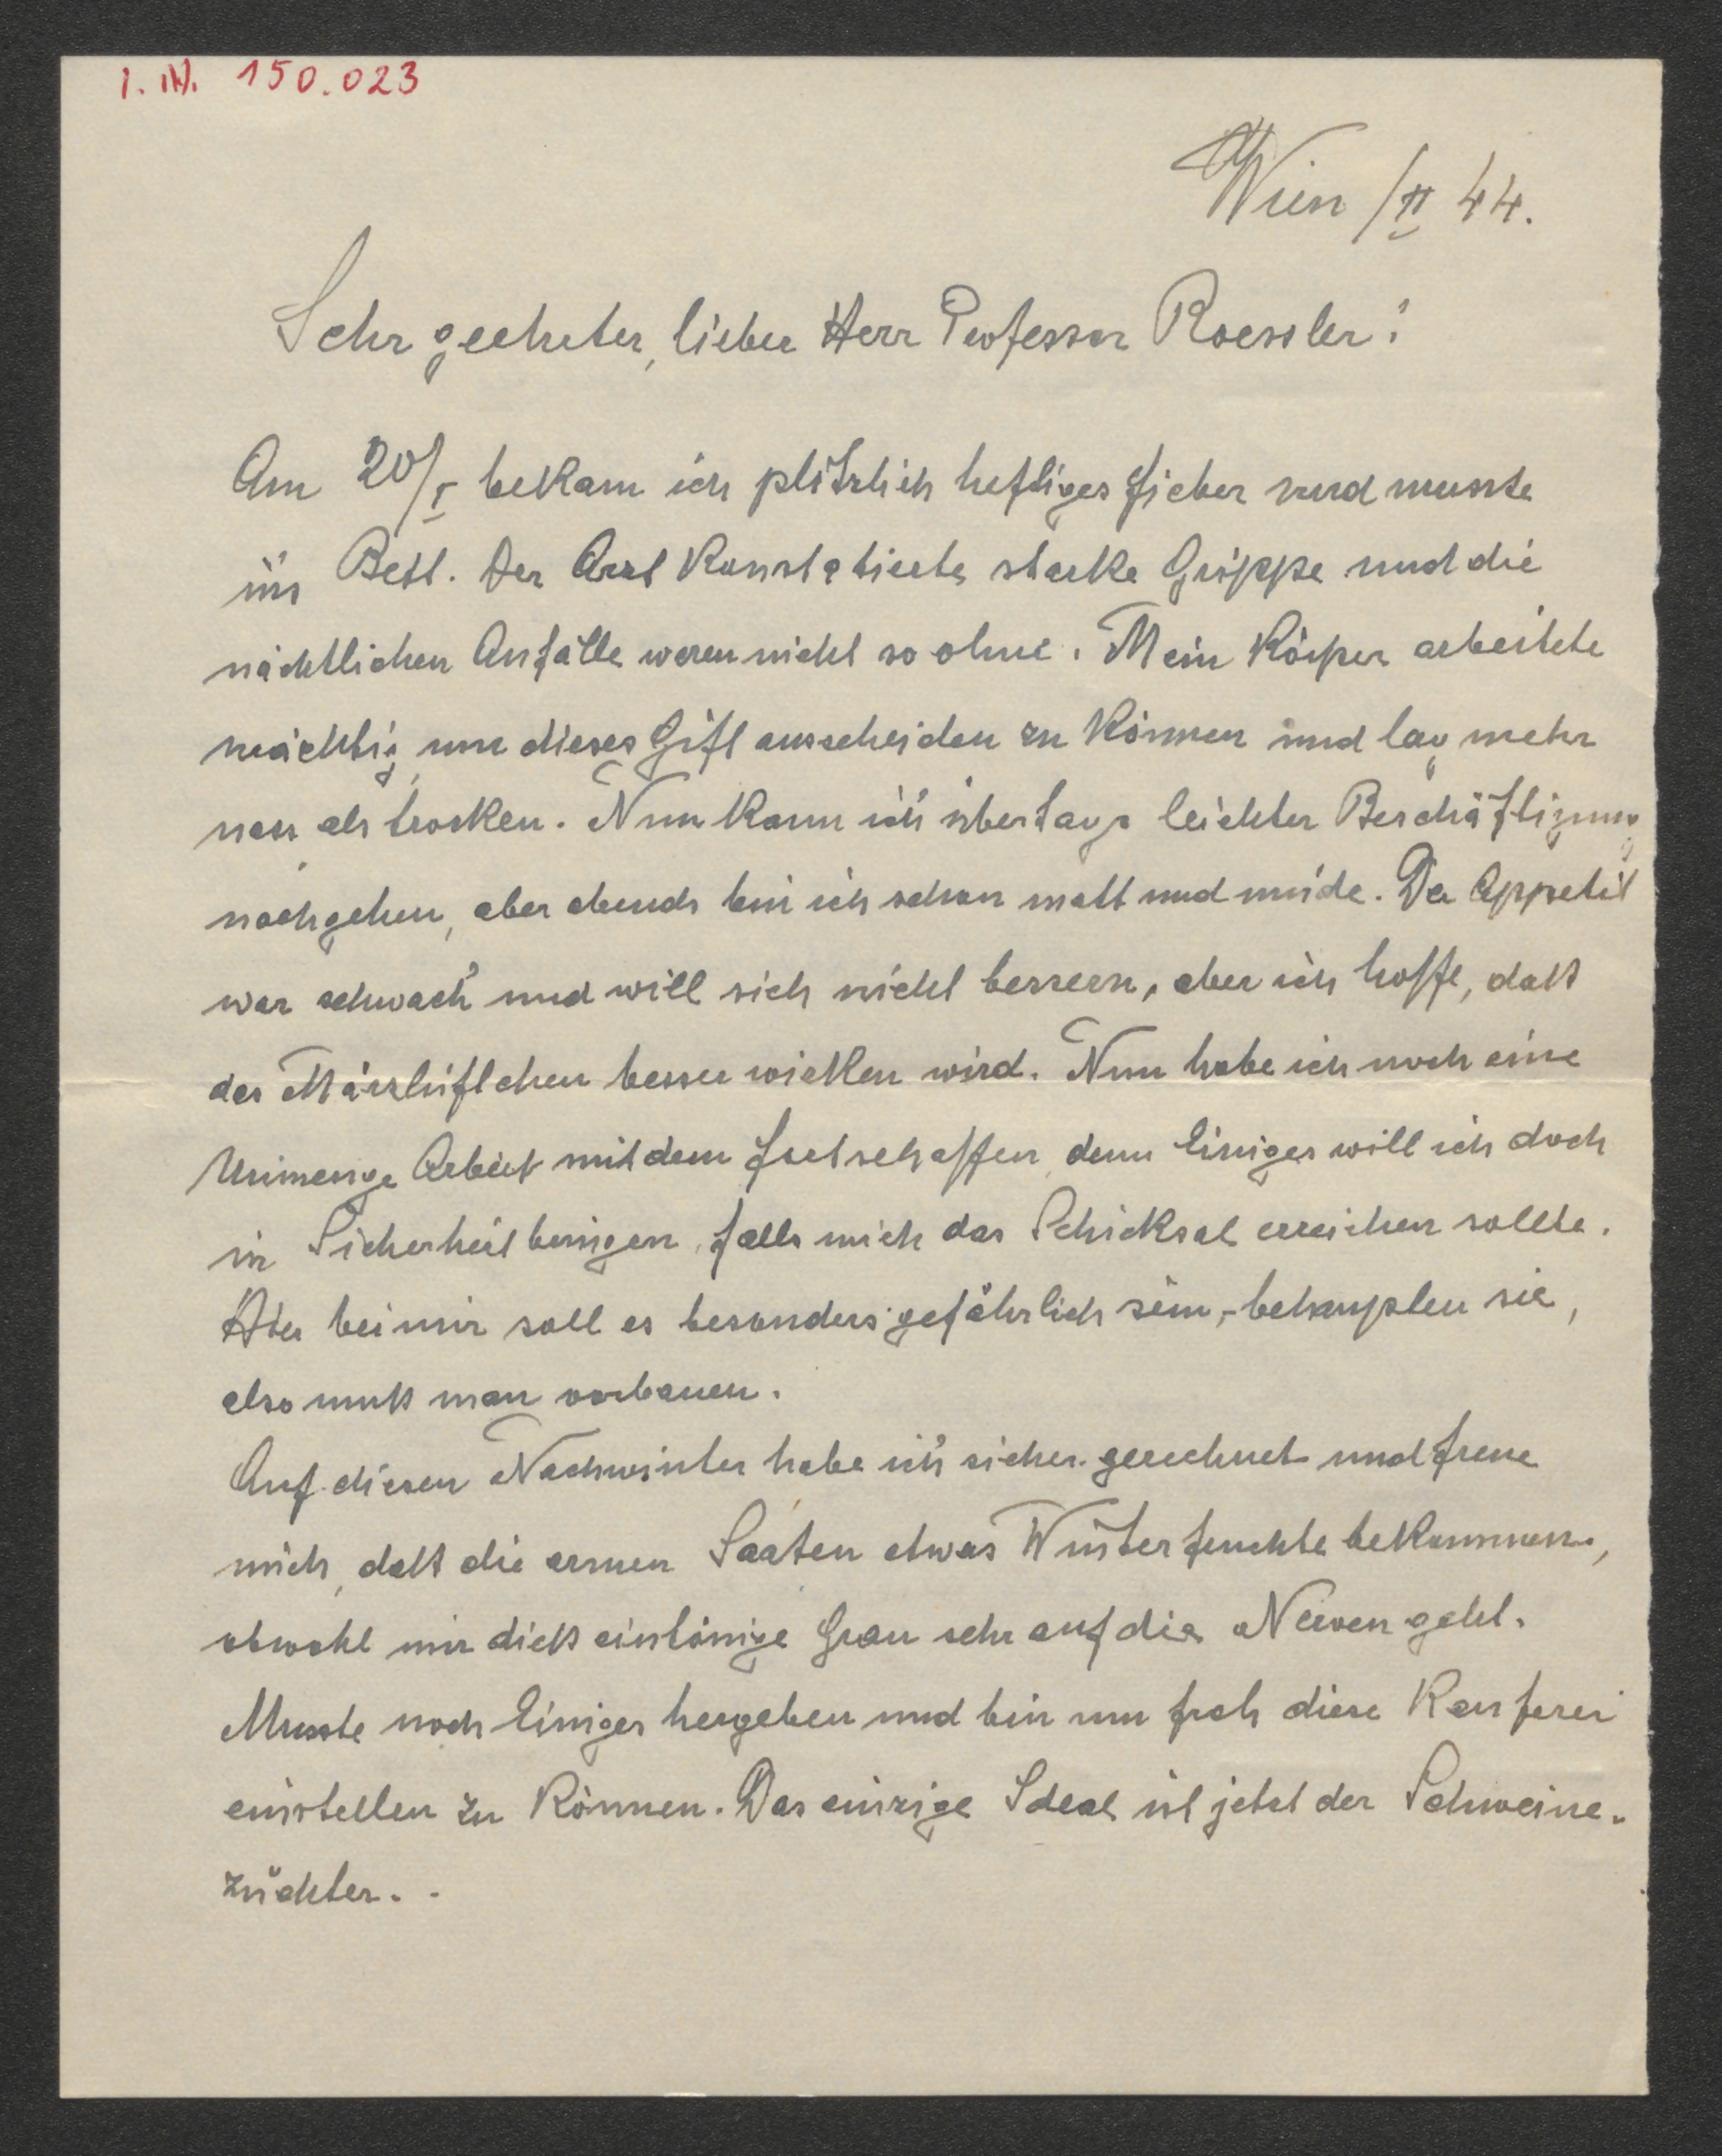 I. N. 150.023
Wien /II 44.
Sehr geehrter, lieber Herr Professor Roessler!
Am 20/I bekam ich plötzlich heftiges Fieber und musste
ins Bett. Der Arzt konstatierte starke Grippe und die
nächtlichen Anfälle waren nicht so ohne. Mein Körper arbeitete
mächtig, um dieses Gift ausscheiden zu können und lag mehr
nass als trocken. Nun kann ich übertags leichter Beschäftigung
nachgehen, aber abends bin ich schon matt und müde. Der Appetit
war schwach und will sich nicht bessern, aber ich hoffe, daß
das Märzlüftchen besser wirken wird. Nun habe ich noch eine
Unmenge Arbeit mit dem Fortschaffen, denn Einiges will ich doch
in Sicherheit bringen, falls mich das Schicksal erreichen sollte.
Hier bei mir soll es besonders gefährlich sein, behaupten sie,
also muß man vorbauen.
Auf diesen Nachwinter habe ich sicher gerechnet und freue
mich, daß die armen Saaten etwas Winterfeuchte bekommen,
obwohl mir dieß eintönige Grau sehr auf die Nerven geht.
Musste noch Einiges hergeben und bin nun froh diese
einstellen zu können. Das einzige Ideal ist jetzt der Schweine-
züchter. .